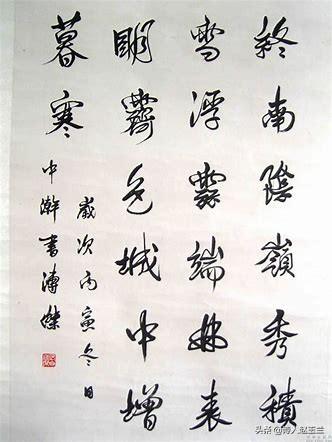 終南陰嶺秀積
雪浮雲端林表
明霽色城中增
暮寒
歲次丙寅冬日
中澣書溥傑
头条 @诗人赵玉兰